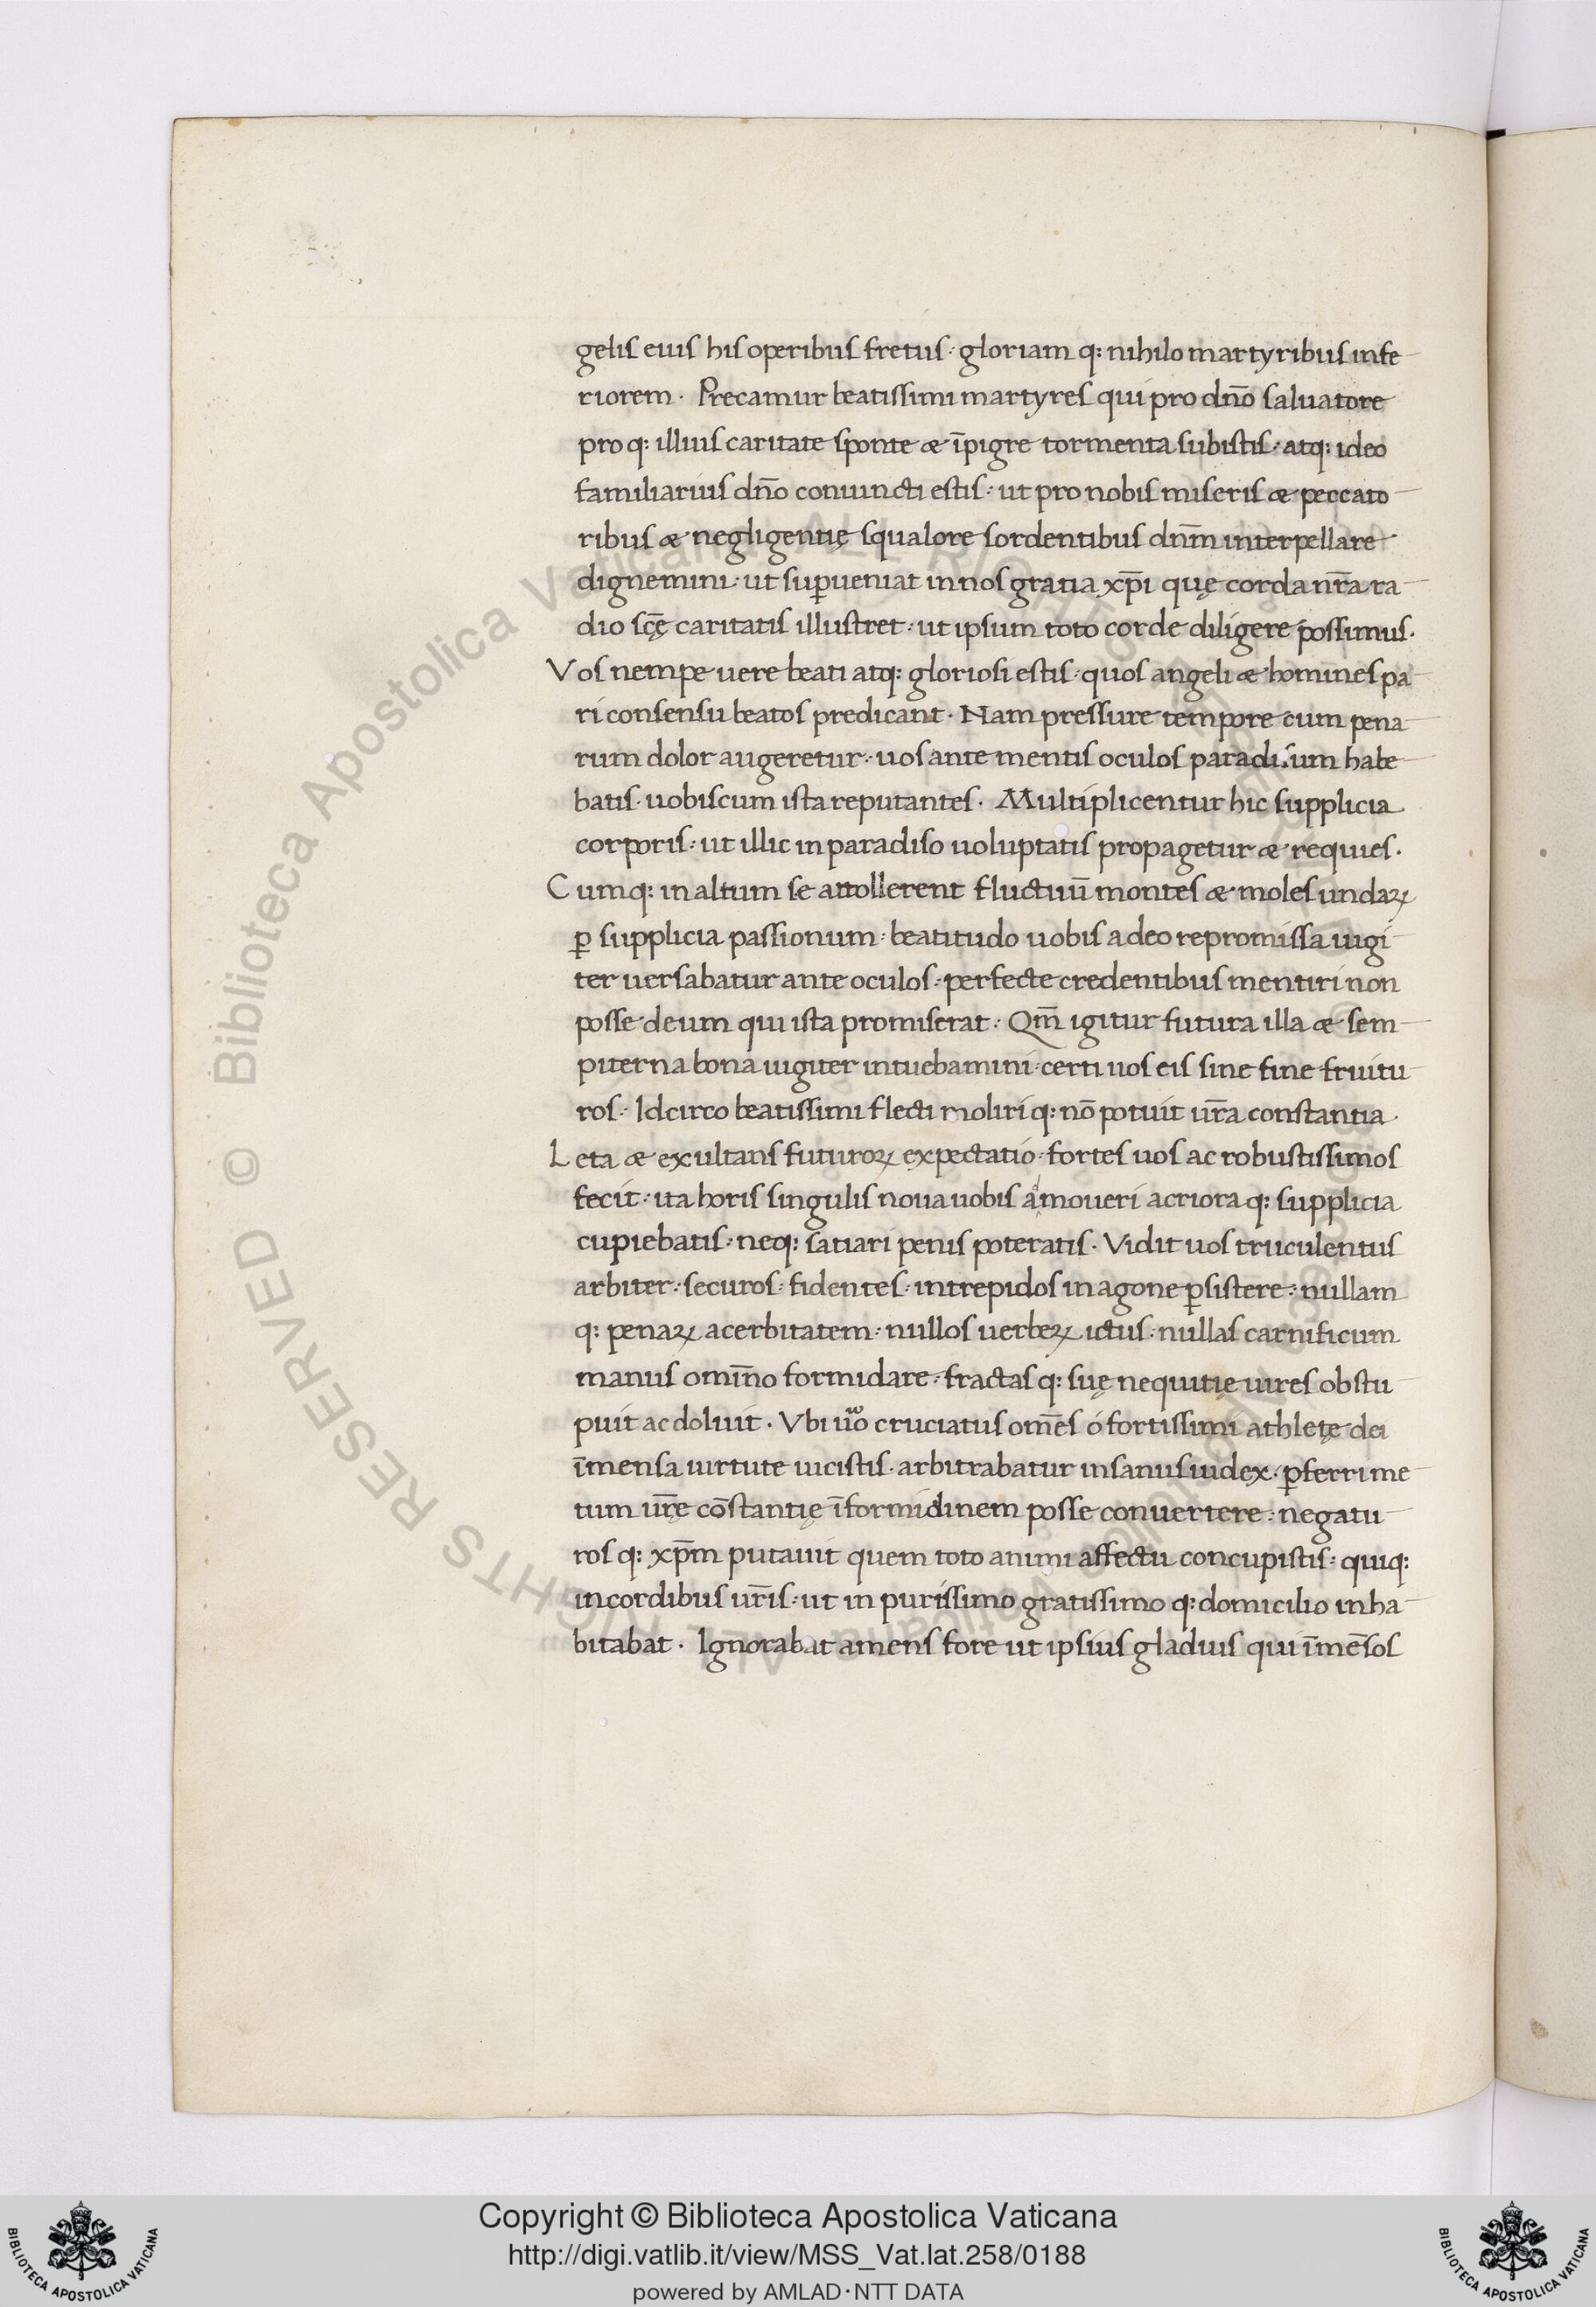 gelis eius his operibus fretus · gloriam q: nihilo martyribus infe
riorem · Precamur beatissimi martyres qui pro dn̄o saluatore
pro q: illius caritate sponte & īpigre tormenta subistis · atq: ideo
familiarius dn̄o coniuncti estis : ut pro nobis miseris & peccato
ribus & negligentię squalore sordentibus dn̄m interpellare
dignemini · ut suꝑueniat in nos gratia xp̄i quę corda nr̄a ra
dio sc̄ę caritatis illustret : ut ipsum toto corde diligere possimus ·
Vos nempe uere beati atq: gloriosi estis · quos angeli & homines pa
ri consensu beatos predicant · Nam pressure tempore cum pena
rum dolor augeretur : uos ante mentis oculos paradisum habe
batis · uobiscum ista reputantes · Multiplicentur hic supplicia
corporis : ut illic in paradiso uoluptatis propagetur & requies ·
Cumq: in altum se attollerent fluctuū montes & moles undaꝝ
ꝑ supplicia passionum : beatitudo uobis a deo repromissa iugi
ter uersabatur ante oculos : perfecte credentibus mentiri non
posse deum qui ista promiserat : Qm̄ igitur futura illa & sem
piterna bona iugiter intuebamini : certi uos eis sine fine fruitu
ros : Idcirco beatissimi flecti moliri q: nō potuit ur̄a constantia ·
Leta & exultans futuroꝝ expectatio : fortes uos ac robustissimos
fecit : ita horis singulis noua uobis ad moueri acriora q: supplicia
cupiebatis : neq: satiari penis poteratis · Vidit uos truculentus
arbiter : securos : fidentes : intrepidos in agone ꝑsistere : nullam
q: penaꝝ acerbitatem : nullos uerbeꝝ ictus : nullas carnificum
manus omīno formidare : fractas q: suę nequitię uires obstu
puit ac doluit · Vbi uͦo cruciatus om̄es ó fortissimi athletę dei
īmensa uirtute uicistis · arbitrabatur insanus iudex · ꝑferri me
tum ur̄ę cōstantię ī formidinem posse conuertere : negatu
ros q: xp̄m putauit quem toto animi affectu concupistis : quiq:
in cordibus ur̄is : ut in purissimo gratissimo q: domicilio inha
bitabat · Ignorabat amens fore ut ipsius gladius qui īmēsos
Copyright © Biblioteca Apostolica Vaticana
http://digi.vatlib.it/view/MSS_Vat.lat.258/0188
powered by AMLAD·NTT DATA